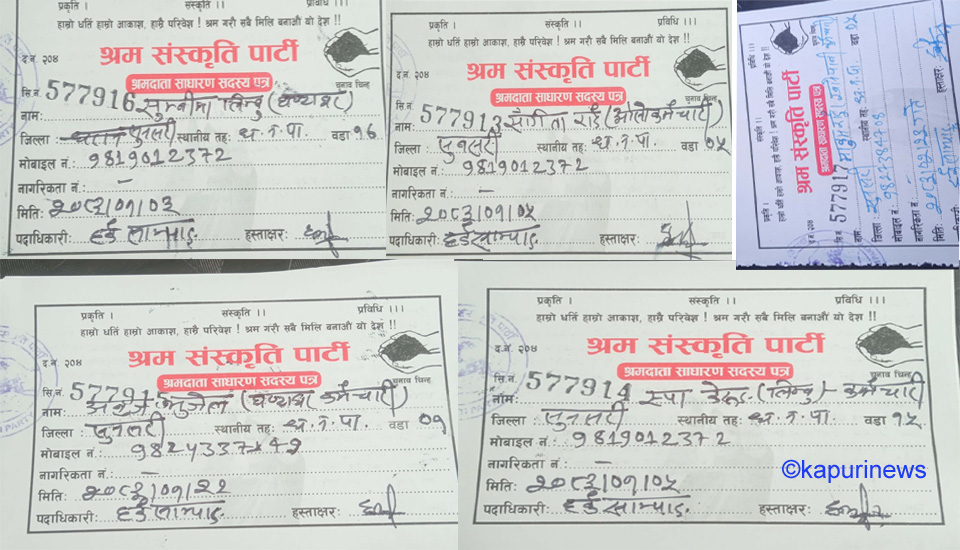 प्रकृति । संस्कृति ।। प्रविधि ।।।
हाम्रो धर्ति हाम्रो आकाश, हाम्रै परिवेश ! श्रम गरी सबै मिलि बनाऔं यो देश !!
द.नं. २०४
श्रम संस्कृति पार्टी
श्रमदाता साधारण सदस्य पत्र
चुनाव चिन्ह
सि.नं. 577916
नाम: सुम्निमा लिम्बु
जिल्ला: सुनसरी स्थानीय तह: ध.न.पा. वडा १६
मोबाइल नं.: 9819012372
नागरिकता नं.: –
मिति: २०८३/०१/०३
पदाधिकारी: हर्क साम्पाङ हस्ताक्षर:
प्रकृति । संस्कृति ।। प्रविधि ।।।
हाम्रो धर्ति हाम्रो आकाश, हाम्रै परिवेश ! श्रम गरी सबै मिलि बनाऔं यो देश !!
द.नं. २०४
श्रम संस्कृति पार्टी
श्रमदाता साधारण सदस्य पत्र
चुनाव चिन्ह
सि.नं. 577913
नाम: राई
जिल्ला: सुनसरी स्थानीय तह: ध.न.पा. वडा ०५
मोबाइल नं.: 9819012372
नागरिकता नं.: –
मिति: २०८३/०१/०५
पदाधिकारी: हर्क साम्पाङ हस्ताक्षर:
प्रकृति । संस्कृति ।। प्रविधि ।।।
श्रम संस्कृति पार्टी
श्रमदाता साधारण सदस्य पत्र
सि.नं. 577917
नाम:
जिल्ला: सुनसरी स्थानीय तह: वडा
मोबाइल नं.:
नागरिकता नं.: –
मिति:
हस्ताक्षर:
प्रकृति । संस्कृति ।। प्रविधि ।।।
हाम्रो धर्ति हाम्रो आकाश, हाम्रै परिवेश ! श्रम गरी सबै मिलि बनाऔं यो देश !!
द.नं. २०४
श्रम संस्कृति पार्टी
श्रमदाता साधारण सदस्य पत्र
चुनाव चिन्ह
सि.नं. 577915
नाम: कर्मचारी)
जिल्ला: सुनसरी स्थानीय तह: ध.न.पा. वडा ०१
मोबाइल नं.:
नागरिकता नं.: –
मिति: २०८३/०१/२२
पदाधिकारी: हर्क साम्पाङ हस्ताक्षर:
प्रकृति । संस्कृति ।। प्रविधि ।।।
हाम्रो धर्ति हाम्रो आकाश, हाम्रै परिवेश ! श्रम गरी सबै मिलि बनाऔं यो देश !!
द.नं. २०४
श्रम संस्कृति पार्टी
श्रमदाता साधारण सदस्य पत्र
चुनाव चिन्ह
सि.नं. 577914
नाम: (लिम्बु) - कर्मचारी
जिल्ला: सुनसरी स्थानीय तह: ध.न.पा. वडा १५
मोबाइल नं.: 9819012372
नागरिकता नं.: –
मिति: २०८३/०१/०५
पदाधिकारी: हर्क साम्पाङ हस्ताक्षर:
©kapurinews